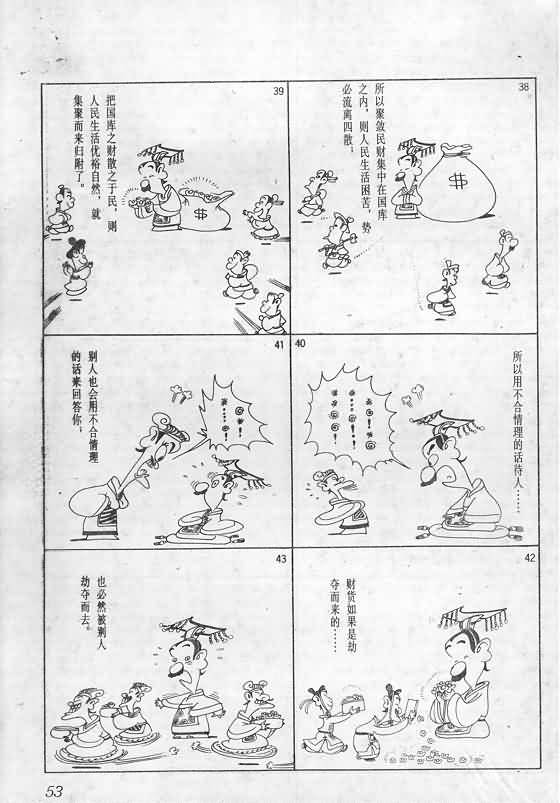 38
所以聚敛民财集中在国库
之内，则人民生活困苦，势
必流离四散；
$
39
把国库之财散之于民，则
人民生活优裕自然，就
集聚而来归附了。
$
40
所以用不合情理的话待人……
41
别人也会用不合情理
的话来回答你；
42
财货如果是劫
夺而来的……
43
也必然被别人
劫夺而去。
53